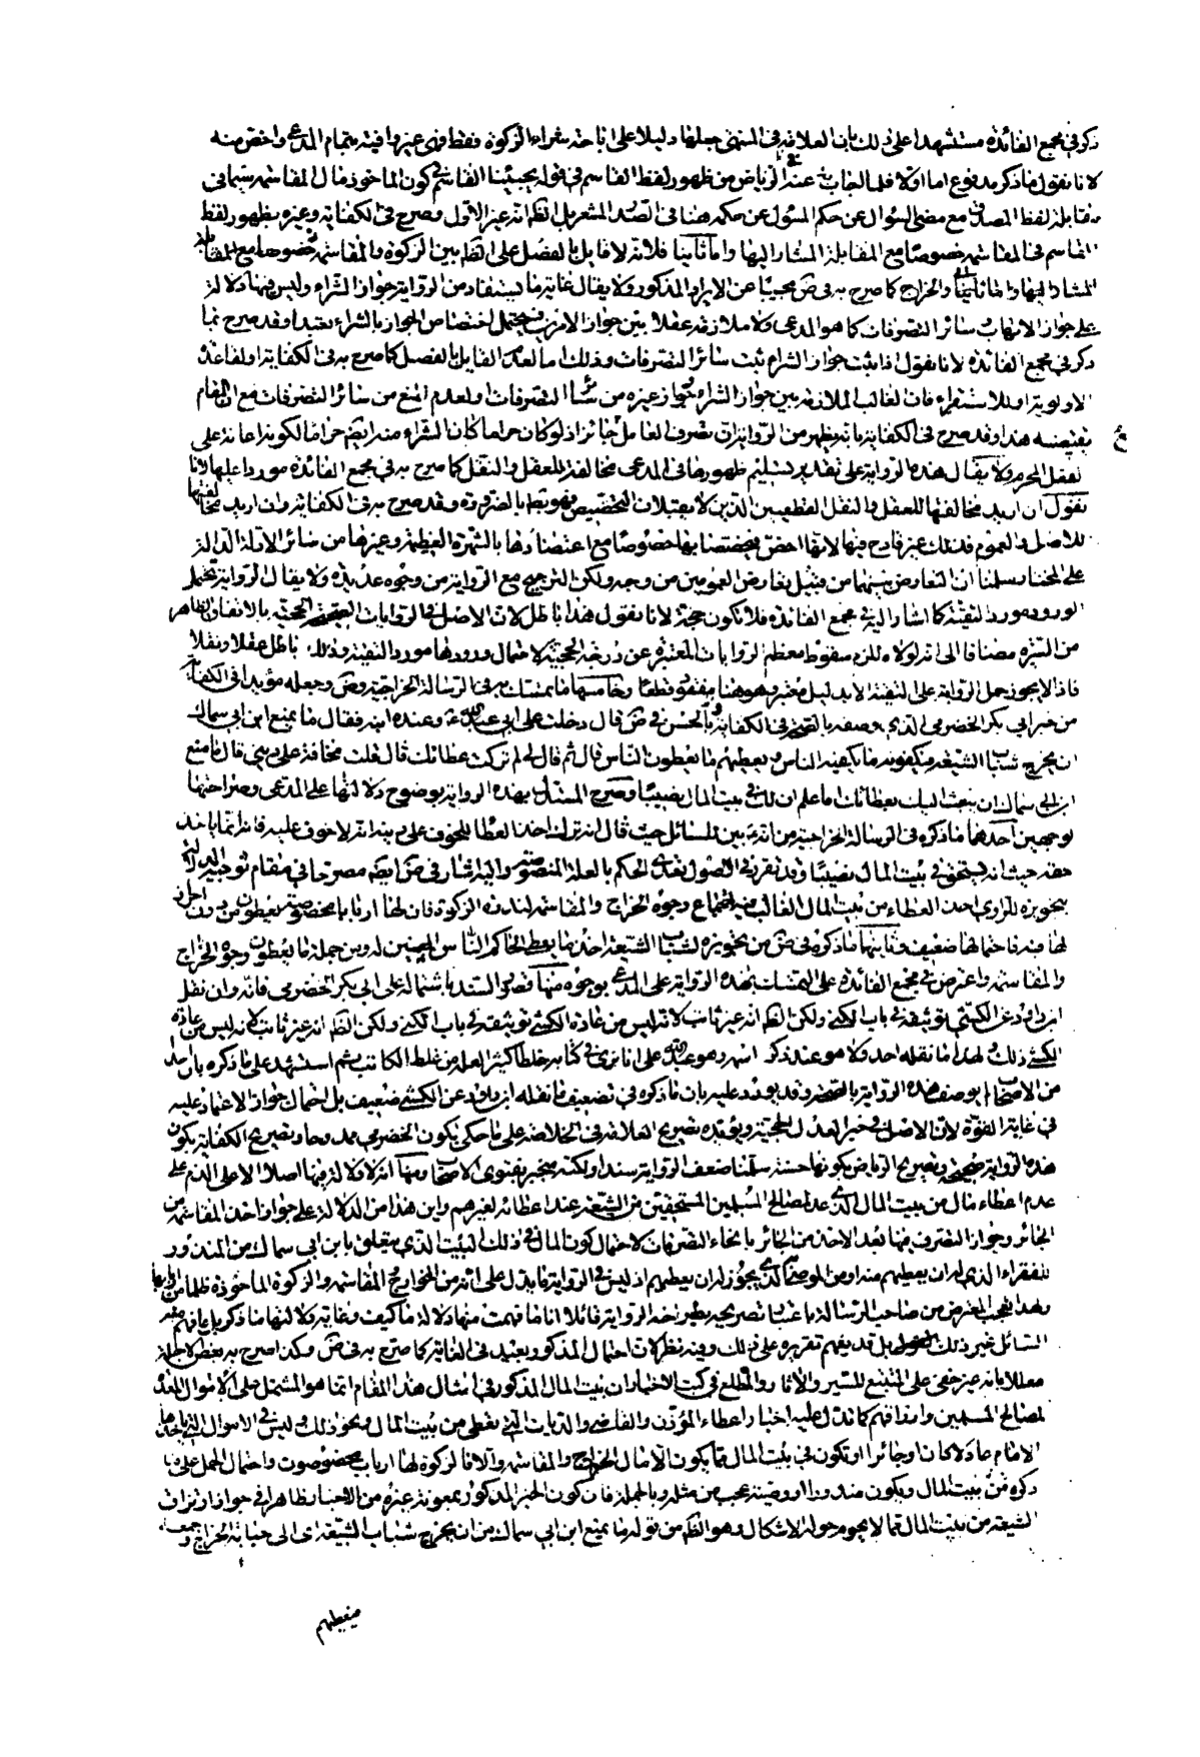 ذكر في مجمع الفائدة مستشهدا على ذلك بان العلامة في المنتهى جعلها دليلا على اباحة شراء الزكوة فقط فهي غير وافية بتمام المدعى واخص منه
لانا نقول ما ذكر مدفوع اما اولا فلما اجاب عنه في الرياض من ظهور لفظ القاسم في قوله يجيئنا القاسم في كون الماخوذ مال المقاسمة سيما في
مقابلة لفظ المصدق مع مضى السؤال عن حكم المسئول عن حكمه هنا في الصدر المشعر بل الظ انه غير الاول وصرح في الكفاية وغيره بظهور لفظ
القاسم في المقاسمة خصوصا مع المقابلة المشار اليها واما ثانيا فلانه لا قايل بالفصل على الظ بين الزكوة والمقاسمة خصوصا مع المقابلة
المشار اليها والخراج كما صرح به في ض مجيبا عن الايراد المذكور ولا يقال غاية ما يستفاد من الرواية جواز الشراء وليس فيها دلالة
على جواز الاتهاب وسائر التصرفات كما هو المدعى ولا ملازمة عقلا بين جواز الامرين فيحتمل اختصاص الجواز بالشراء تعبدا وقد صرح بما
ذكر في مجمع الفائدة لانا نقول اذا ثبت جواز الشراء ثبت سائر التصرفات وذلك اما لعدم القايل بالفصل كما صرح به في الكفاية او لقاعدة
الاولوية او للاستقراء فان الغالب الملازمة بين جواز الشراء وجواز غيره من سائر التصرفات او لعدم المنع من سائر التصرفات مع ان المقام
يقتضيه هذا وقد صرح في الكفاية بانه يظهر من الرواية ان تصرف العامل جائز اذ لو كان حراما كان الشراء منه ايضا حراما لكونه اعانة على
الفعل المحرم ولا يقال هذه الرواية على تقدير تسليم ظهورها في المدعى مخالفة للعقل والنقل كما صرح به في مجمع الفائدة موردا عليها لانا
نقول ان اريد مخالفتها للعقل والنقل القطعيين الذين لا يقبلان التخصيص فهو بط بالضرورة وقد صرح به في الكفاية وان اريد مخالفتها
للاصل والعموم فذلك غير قادح فيها لانها اخص فيختصان بها خصوصا مع اعتضادها بالشهرة العظيمة وغيرها من سائر الادلة الدالة
على المختار سلمنا ان التعارض بينهما من قبيل تعارض العمومين من وجه ولكن الترجيح مع الرواية من وجوه عديدة ولا يقال الرواية يحتمل
الورود مورد التقية كما اشار اليه في مجمع الفائدة فلا تكون حجة لانا نقول هذا باطل لان الاصل في الروايات الحجية بالاتفاق الظاهر
من السيرة مضافا الى انه لولاه للزم سقوط معظم الروايات المعتبرة عن درجة الحجية لاحتمال ورودها مورد التقية وذلك باطل عقلا ونقلا
فاذا لا يجوز حمل الرواية على التقية الا بدليل معتبر وهو هنا مفقود قطعا وخامسها ما تمسك به في الرسالة الخراجية وض وجعله مؤيدا في الكفاية
من خبر ابي بكر الحضرمي الذي وصفه بالصحة في الكفاية وبالحسن في ض قال دخلت على ابي عبد الله ع وعنده ابنه فقال ما يمنع ابن ابي سماك
ان يخرج شباب الشيعة فيكفونه ما يكفيه الناس ويعطيهم ما يعطون الناس قال ثم قال لي لم تركت عطائك قال قلت مخافة على ديني قال ما منع
ابن ابي سماك ان يبعث اليك بعطائك اما علم ان لك في بيت المال نصيبا وصرح المستدل بهذه الرواية بوضوح دلالتها على المدعى وصراحتها
لوجهين احدهما ما ذكره في الرسالة الخراجية من انه ع بين للسائل حيث قال انه ترك اخذ العطاء للخوف على دينه انه لا خوف عليه فانه انما ياخذ
حقه حيث انه يستحق في بيت المال نصيبا وقد تقرر في الاصول تعدى الحكم بالعلة المنصوصة واليه اشار في ض ايضا مصرحا في مقام توجيه الدلالة
بتجويزه للراوي اخذ العطاء من بيت المال الغالب فيه اجتماع وجوه الخراج والمقاسمة لندرة الزكوة فان لها اربابا مخصوصين يعطون من دون
لها فيه فاحتمالها ضعيف وثانيهما ما ذكره في ض من تجويزه لشباب الشيعة اخذ ما يعطى الحاكم الناس المعينين له ومن جملة ما يعطون وجوه الخراج
والمقاسمة واعترض في مجمع الفائدة على التمسك بهذه الرواية على المدعى بوجوه منها قصور السند باشتماله على ابي بكر الحضرمي فانه وان نقل
ابن داود عن الكشي توثيقه في باب الكنى ولكن الظ انه غير ثابت لانه ليس من عادة الكشي توثيقه في باب الكنى ولكن الظ انه غير ثابت لانه ليس من عادة
الكشي ذلك ولهذا ما نقله احد ولا هو عند ذكر اسمه وهو عبد الله على انا نرى في كتابه غلطا كثيرا لعله من غلط الكاتب ثم استشهد على ما ذكره بان
من الاصحاب لم يوصف هذه الرواية بالصحة وقد يورد عليه بان ما ذكره في تضعيف ما نقله ابن داود عن الكشي ضعيف بل احتمال جواز الاعتماد عليه
في غاية القوة لان الاصل في خبر العدل الحجية ويؤيده تصريح العلامة في الخلاصة على ما حكى بكون الخضرمي ممدوحا وتصريح الكفاية بكون
هذه الرواية صحيحة وتصريح الرياض بكونها حسنة سلمنا ضعف الرواية سندا ولكنه منجبر بفتوى الاصحاب ومنها انه لا دلالة فيها اصلا الا على الذم على
عدم اعطاء مال من بيت المال الذي عد لمصالح المسلمين المستحقين من الشيعة عند اعطائه لغيرهم واين هذا من الدلالة على جواز اخذ المقاسمة من
الجائر وجواز التصرف فيها بعد الاخذ من الجائر بانحاء التصرفات لاحتمال كون المال في ذلك البيت الذي يتعلق بابن ابي سماك من المنذور
للفقراء الذي له ان يعطيهم منه او من الوصايا الذي يجوز له ان يعطيهم اذ ليس في الرواية ما يدل على انه من الخراج والمقاسمة والزكوة الماخوذة ظلما من اربابها
ولهذا تعجب المعترض من صاحب الرسالة باعتبار تصريحه بظهور هذه الرواية قائلا انا ما فهمت منها دلالة ما كيف وغاية دلالتها ما ذكر بل ما فهم
السائل غير ذلك بل قد يفهم تقريره على ذلك وفيه نظر لان احتمال المذكور بعيد في الغاية كما صرح به في ض وكذا صرح به بعض الاجلة
معللا بانه غير خفي على المتتبع للسير والاثار والمطلع في كتب الاخبار ان بيت المال المذكور في امثال هذا المقام انما هو المشتمل على الاموال المعدة
لمصالح المسلمين وارزاقهم كما تدل عليه اخبار اعطاء المؤذن والقاضي والديات التي تعطى من بيت المال ونحو ذلك وليس في الاموال التي ياخذها
الامام عادلا كان او جائرا او تكون في بيت المال ما يكون الا مال الخراج والمقاسمة والا فالزكوة لها ارباب مخصوصون واحتمال الحمل على ما
ذكره من بيت المال ويكون منذورا او وصية عجب من مثله وبالجملة فان كون الخبر المذكور بمعونة غيره من الاخبار ظاهر في جواز ارتزاق
الشيعة من بيت المال مما لا يحوم حوله الاشكال وهو الظ من قوله ما يمنع ابن ابي سماك من ان يخرج شباب الشيعة اى الى جباية الخراج وجمعه
فيعطيهم